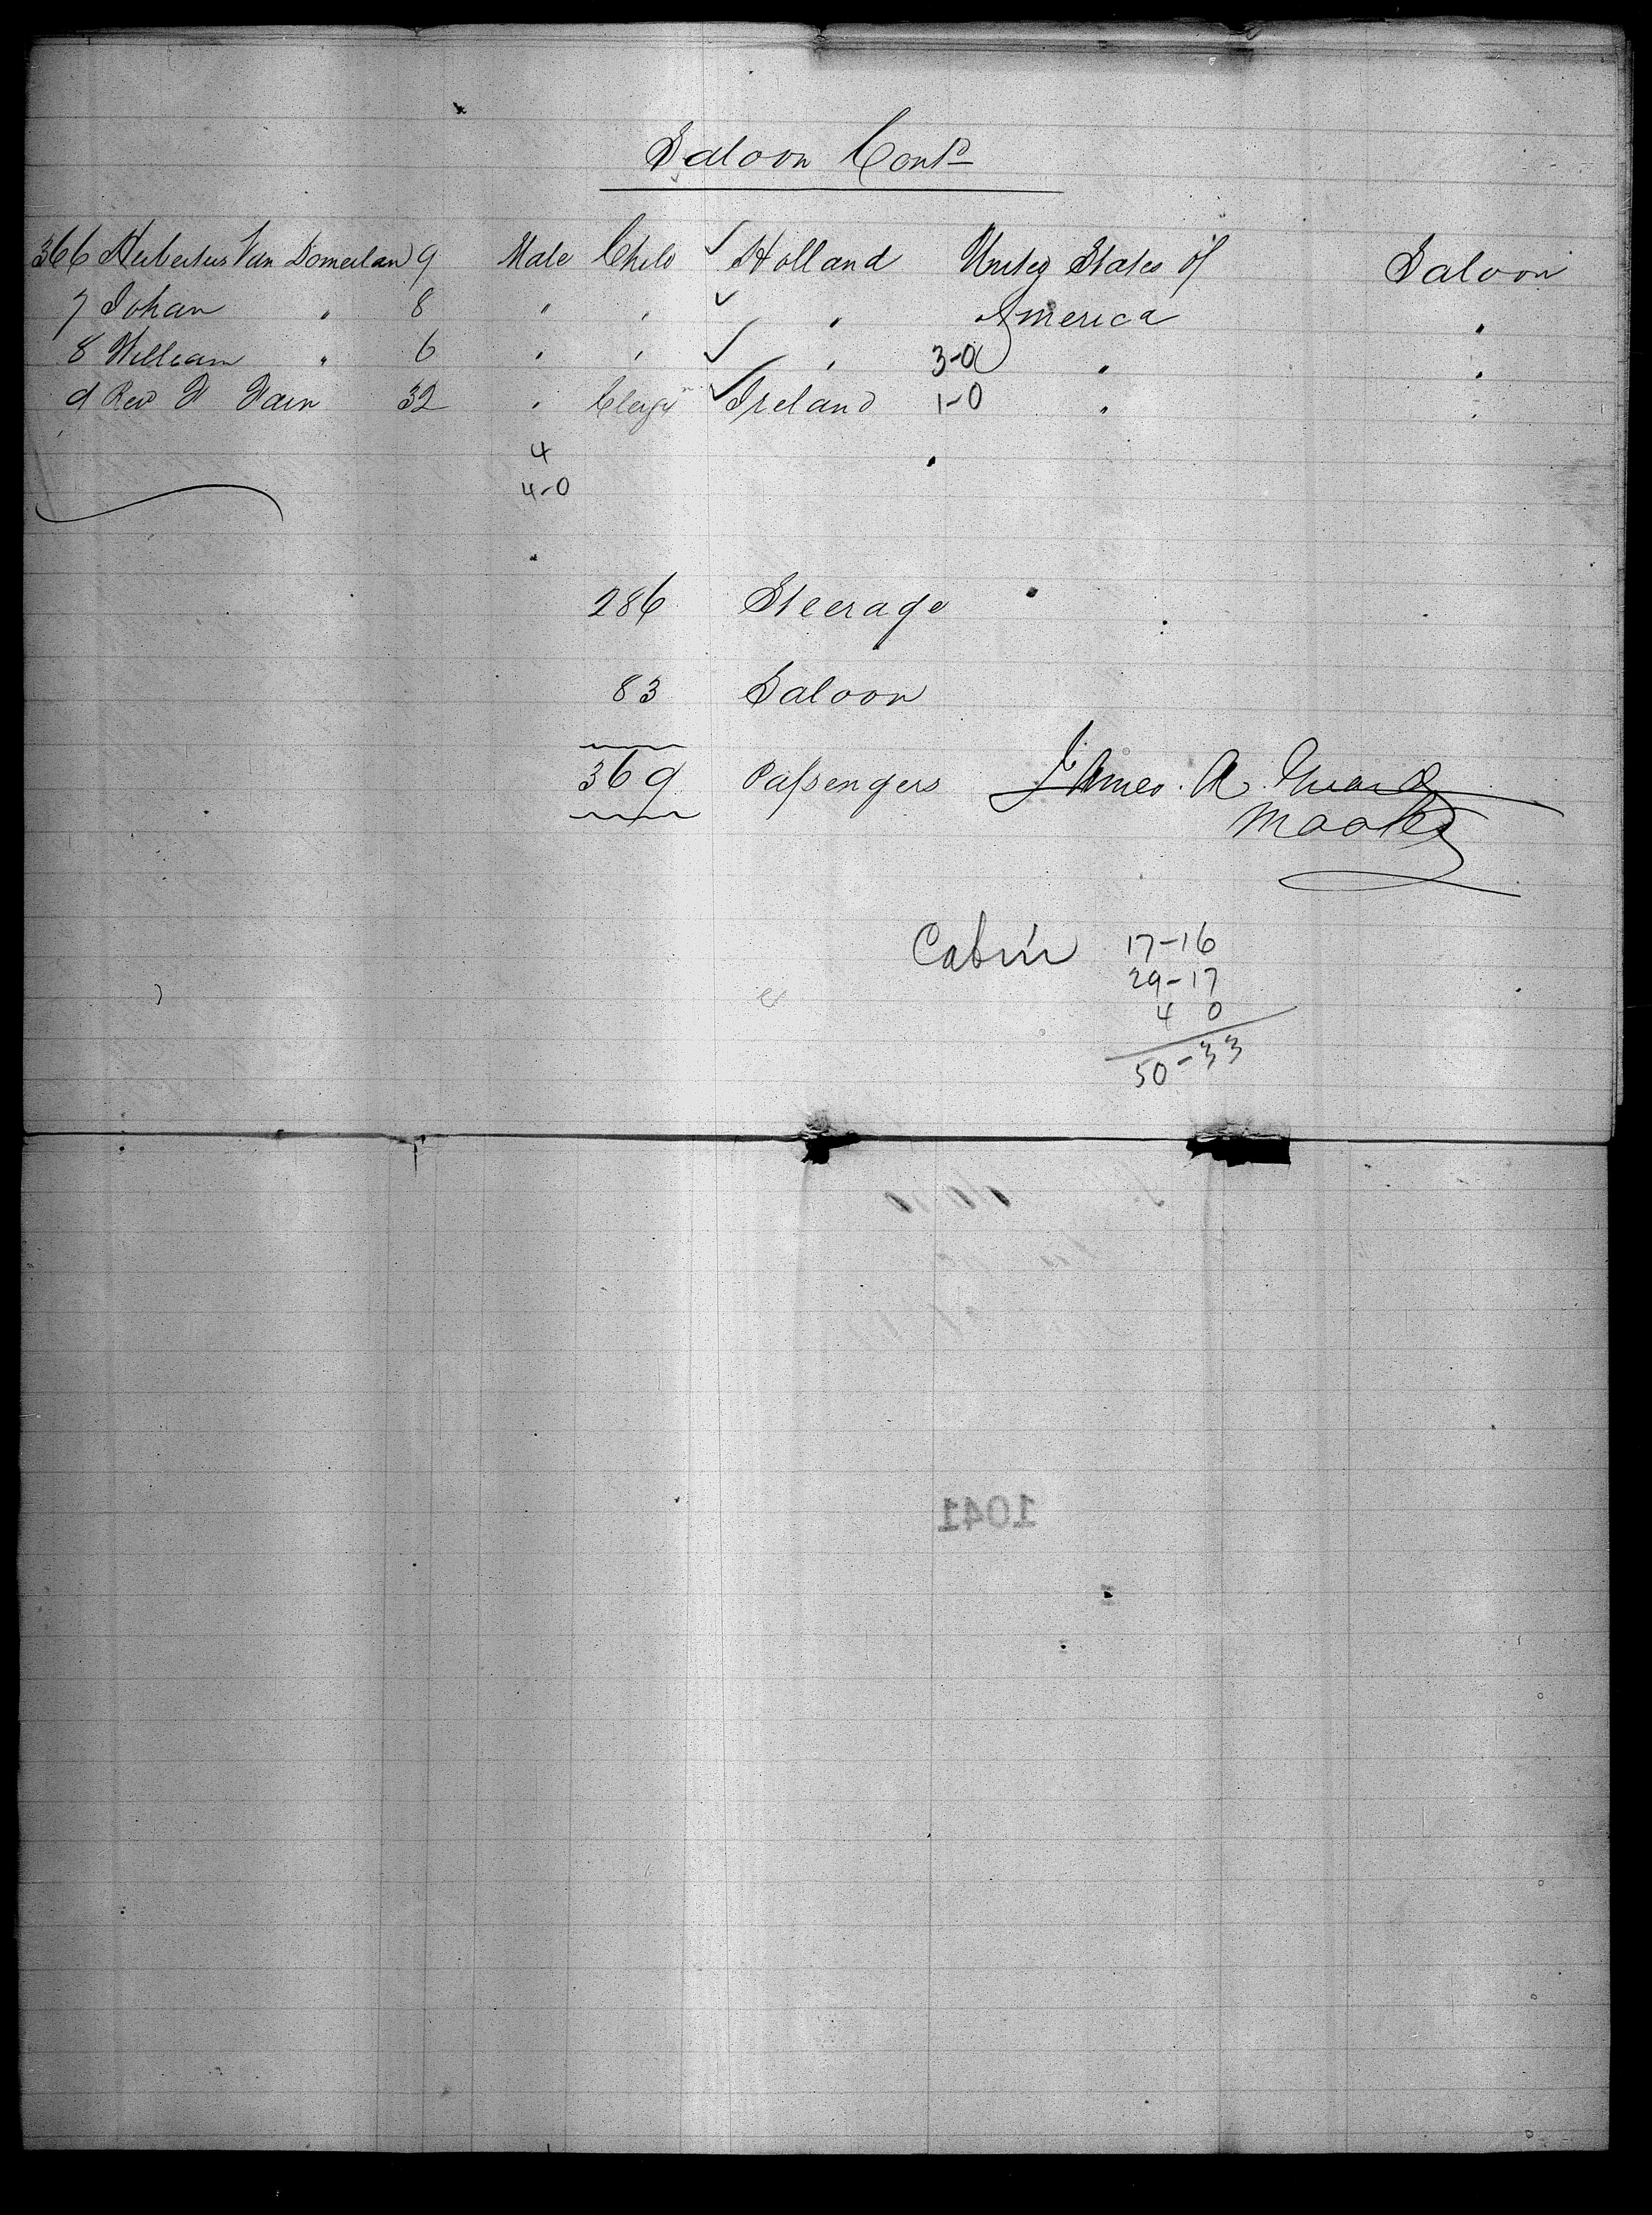 Saloon Cont^d
366 Herbertus Van Domerlan 9 Male Child ✓ Holland United States of Saloon
7 Johan " 8 " " ✓ " America "
8 William " 6 " " ✓ " 3-0 " "
9 Rev 32 " Clergyn ✓ Ireland 1-0 " "
4
4-0
286 Steerage
83 Saloon
369 Passengers James. A.
Master
Cabin 17-16
29-17
4 0
50-33
1041